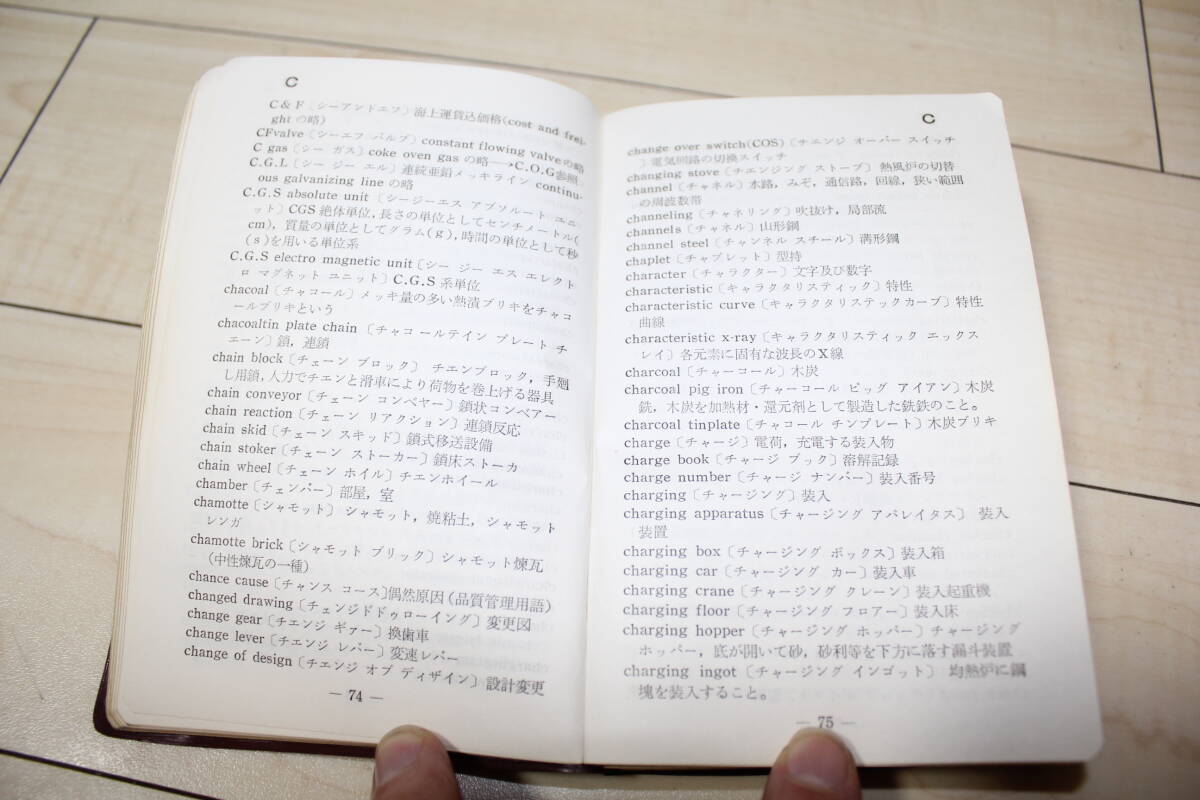 C
C & F〔シーアンドエフ〕海上運賃込価格(cost and frei-
ght の略)
CFvalve〔シーエフ バルブ〕constant flowing valveの略
C gas〔シー ガス〕coke oven gas の略→C.O.G参照
C.G.L〔シー ジー エル〕連続亜鉛メッキライン continu-
ous galvanizing line の略
C.G.S absolute unit〔シージーエス アブソルート ユニ
ット〕CGS 絶体単位，長さの単位としてセンチメートル(
cm)，質量の単位としてグラム(g)，時間の単位として秒
(s)を用いる単位系
C.G.S electro magnetic unit〔シー ジー エス エレクト
ロ マグネット ユニット〕C.G.S 系単位
chacoal〔チャコール〕メッキ量の多い熱漬ブリキをチャコ
ールブリキという
chacoaltin plate chain〔チャコールテイン プレート チ
ェーン〕鎖，連鎖
chain block〔チェーン ブロック〕チエンブロック，手廻
し用鎖，人力でチエンと滑車により荷物を巻上げる器具
chain conveyor〔チェーン コンベヤー〕鎖状コンベアー
chain reaction〔チェーン リアクション〕連鎖反応
chain skid〔チェーン スキッド〕鎖式移送設備
chain stoker〔チェーン ストーカー〕鎖床ストーカ
chain wheel〔チェーン ホイル〕チエンホイール
chamber〔チェンバー〕部屋，室
chamotte〔シャモット〕シャモット，焼粘土，シャモット
レンガ
chamotte brick〔シャモット ブリック〕シャモット煉瓦
(中性煉瓦の一種)
chance cause〔チャンス コース〕偶然原因(品質管理用語)
changed drawing〔チェンジドドゥローイング〕変更図
change gear〔チエンジ ギァー〕換歯車
change lever〔チエンジ レバー〕変速レバー
change of design〔チエンジ オブ ディザイン〕設計変更
— 74 —
C
change over switch(COS)〔チエンジ オーバー スイッチ
〕電気回路の切換スイッチ
changing stove〔チエンジング ストーブ〕熱風炉の切替
channel〔チャネル〕水路，みぞ，通信路，回線，狭い範囲
の周波数帯
channeling〔チャネリング〕吹抜け，局部流
channels〔チャネル〕山形鋼
channel steel〔チャンネル スチール〕溝形鋼
chaplet〔チャプレット〕型持
character〔チャラクター〕文字及び数字
characteristic〔キャラクタリスティック〕特性
characteristic curve〔キャラクタリステックカーブ〕特性
曲線
characteristic x-ray〔キャラクタリスティック エックス
レイ〕各元素に固有な波長のX線
charcoal〔チャーコール〕木炭
charcoal pig iron〔チャーコール ピッグ アイアン〕木炭
銑，木炭を加熱材・還元剤として製造した銑鉄のこと。
charcoal tinplate〔チャコール チンプレート〕木炭ブリキ
charge〔チャージ〕電荷，充電する装入物
charge book〔チャージ ブック〕溶解記録
charge number〔チャージ ナンバー〕装入番号
charging〔チャージング〕装入
charging apparatus〔チャージング アパレイタス〕 装入
装置
charging box〔チャージング ボックス〕装入箱
charging car〔チャージング カー〕装入車
charging crane〔チャージング クレーン〕装入起重機
charging floor〔チャージング フロアー〕装入床
charging hopper〔チャージング ホッパー〕チャージング
ホッパー，底が開いて砂，砂利等を下方に落す漏斗装置
charging ingot〔チャージング インゴット〕 均熱炉に鋼
塊を装入すること。
— 75 —